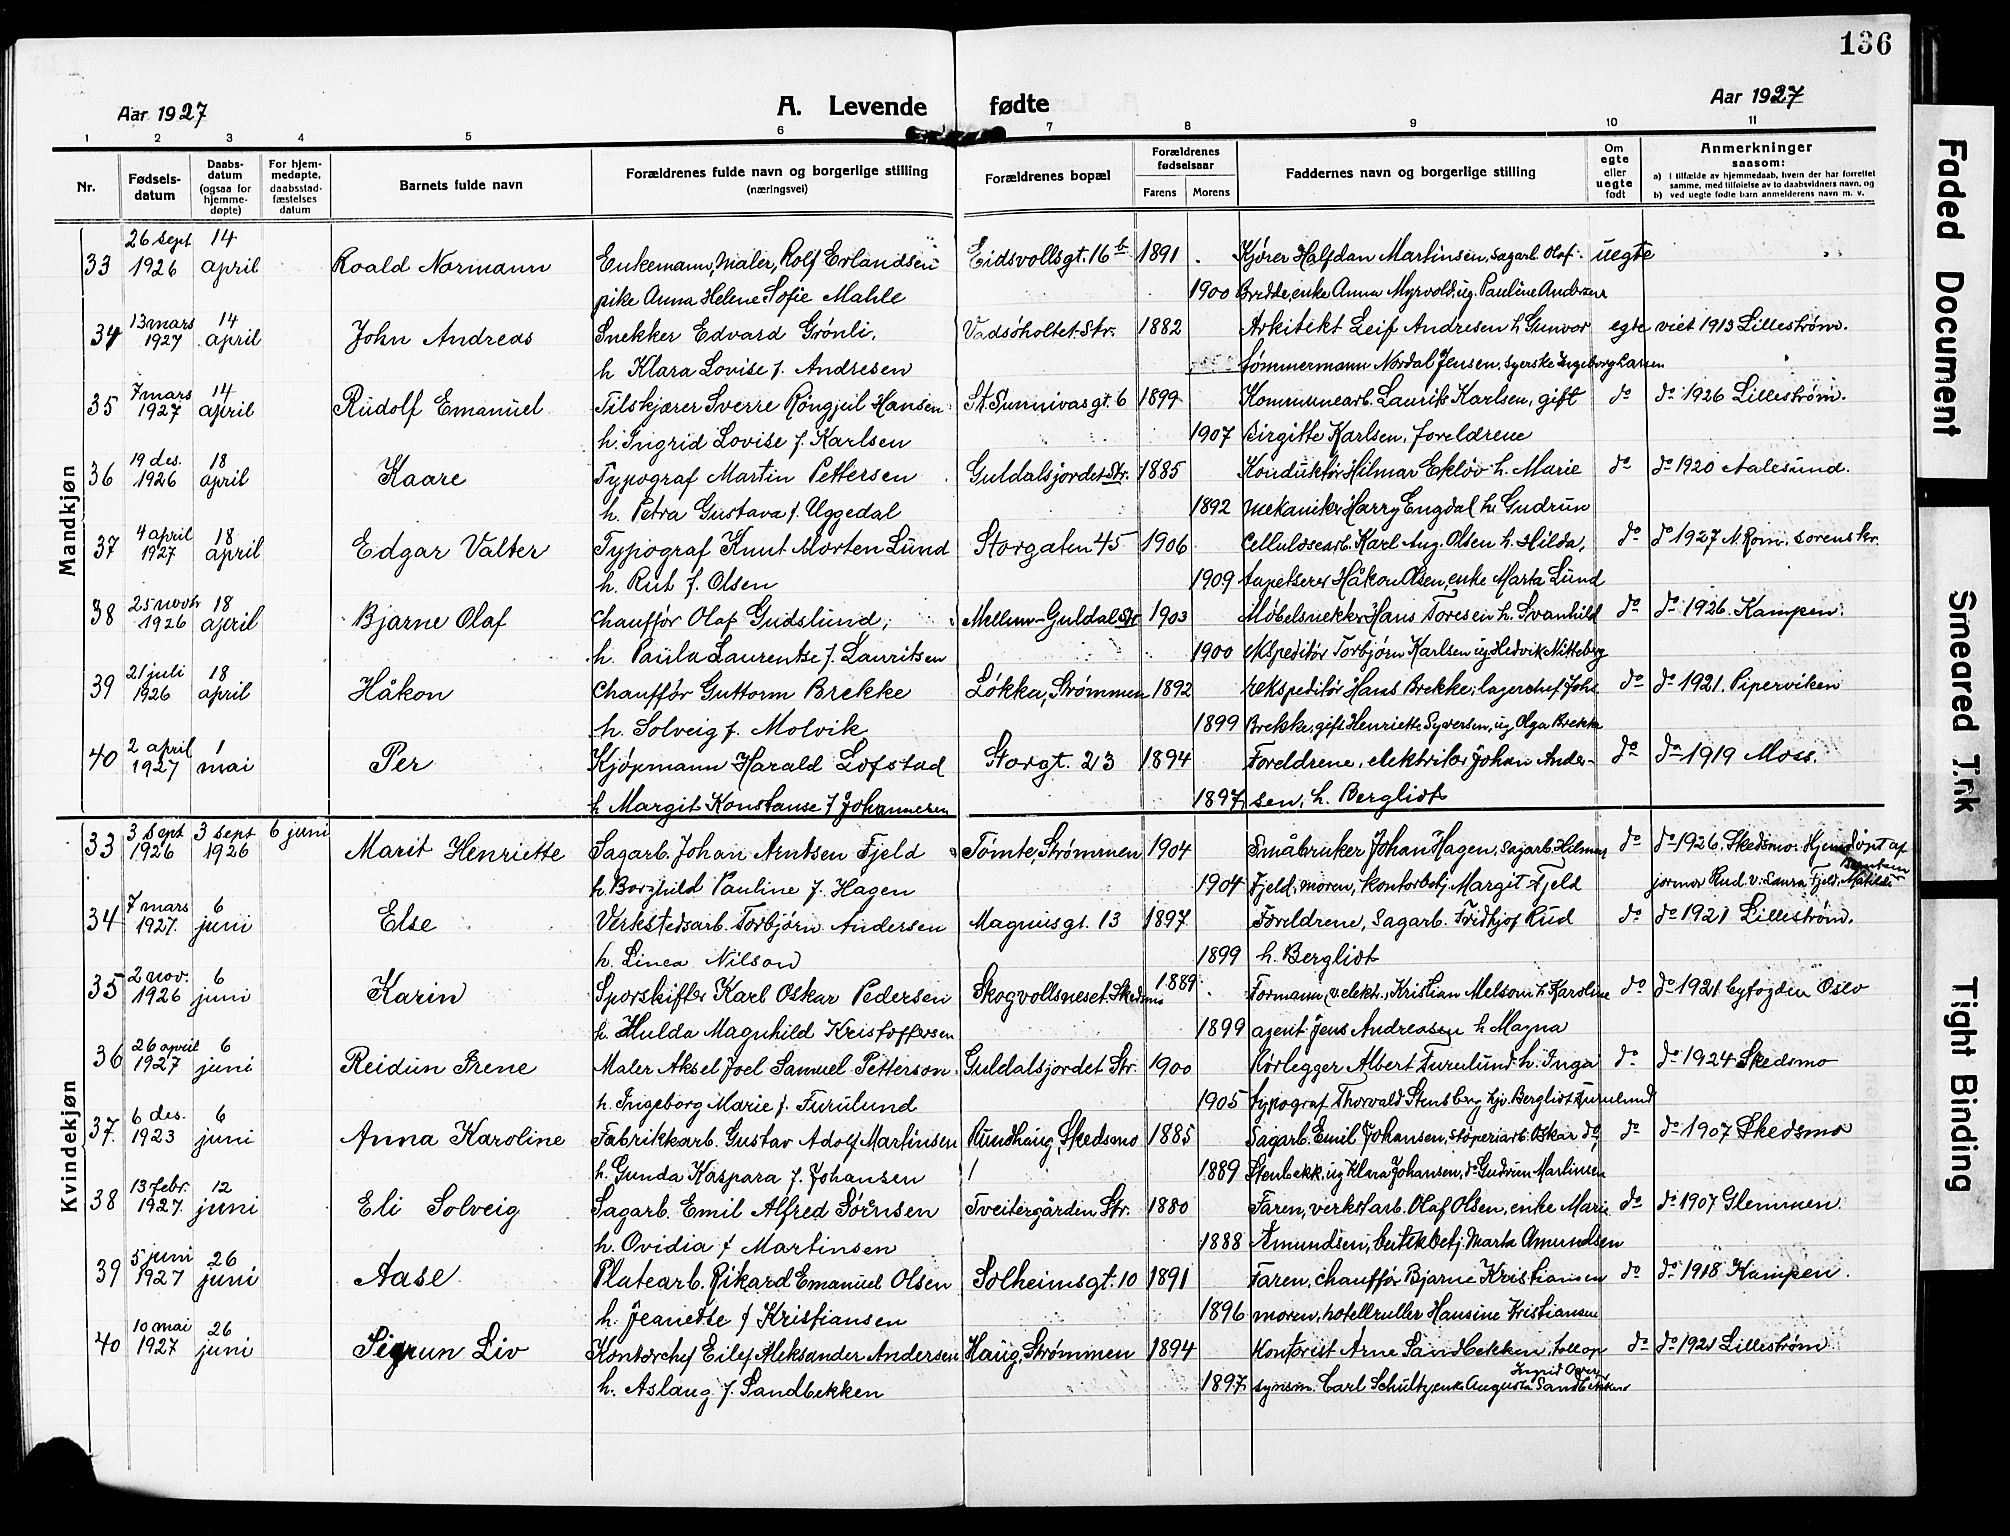 136
Aar 1927
A. Levende fødte
Aar 1927
1 2 3 4 5 6 7 8 9 10 11
Nr.
Fødsels-datum
Daabs-datum (ogsaa for hjemme-døpte)
For hjem-medøpte, daabsstad-fæstelses datum
Barnets fulde navn
Forældrenes fulde navn og borgerlige stilling (næringsvei)
Forældrenes bopæl
Forældrenes fødselsaar
Farens Morens
Faddernes navn og borgerlige stilling
Om egte eller uegte født
Anmerkninger saasom:
a) i tilfælde av hjemmedaab, hvem der har forrettet samme, med tilføielse av to daabsvidners navn, og
b) ved uegte fødte barn anmelderens navn m. v.
Mandkjøn
33 26 sept 1926 14 april Roald Normann Enkemann, Maler, Rolf Erlandsen Eidsvollsgt. 16 b 1891 Kjører Halfdan Martinsen, sagarb. Olaf uegte
pike Anna Helene Sofie Mahle 1900 Bredde, enke Anna Myrvold, ug. Pauline Andersen
34 13 mars 1927 14 april John Andreas Snekker Edvard Grønli, Vadsøholtet Str. 1882 Arkitekt Leif Andresen h. Gunvor egte viet 1913 Lillestrøm.
h Klara Lovise f. Andresen tømmermann Nordal Jensen, syerske Ingeborg Larsen
35 7 mars 1927 14 april Rudolf Emanuel Tilskjærer Sverre Røngjul Hansen St. Sunnivasgt. 6 1899 Kommunearb. Laurits Karlsen, gift do do 1926 Lillestrøm.
h. Ingrid Lovise f. Karlsen 1907 Birgitte Karlsen, foreldrene
36 19 des. 1926 18 april Kaare Typograf Martin Pettersen Guldalsjordet Str. 1885 Konduktør Hilmar Ekløv h. Marie do do 1920 Aalesund.
h. Petra Gustava f. Uggedal 1892 mekaniker Harry Engdal h. Gudrun
37 4 april 1927 18 april Edgar Valter Typograf Knut Morten Lund Storgaten 45 1906 Cellulosearb. Karl Aug. Olsen h. Hilda, do do 1927 N. Rom. sorenskr.
h. Rut f. Olsen 1909 tapetserer Håkon Olsen, enke Marta Lund
38 25 novbr 1926 18 april Bjarne Olaf Chauffør Olaf Gudslund, Mellum-Guldal Str 1903 Møbelsnekker Hans Toresen h. Svanhild do do 1926 Kampen.
h. Paula Laurentse f. Lauritsen 1900 ekspeditør Torbjørn Karlsen ug. Hedvik Nitteberg
39 21 juli 1926 18 april Håkon Chauffør Guttorm Brekke Løkka, Strømmen 1892 ekspeditør Hans Brekke, lagerchef Johs do do 1921. Piperviken
h. Solveig f. Molvik 1899 Brekke, gift Henriette Syversen, ug. Olga Brekke
40 2 april 1927 1 mai Per Kjøpmann Harald Lofstad Storgt. 23 1894 Foreldrene, elektriker Johan Ander- do do 1919 Moss.
h Margit Konstanse f Johannesen 1897 sen, h. Bergliot
Kvindekjøn
33 3 sept 1926 3 sept 1926 6 juni Marit Henriette Sagarb. Johan Arntsen Fjeld Tomte, Strømmen 1904 Småbruker Johan Hagen, sagarb. Hilmar do do 1926, Skedsmo. Hjemdøpt af
h. Borghild Pauline f. Hagen 1904 Fjeld, moren, kontorbetj. Margit Fjeld jormor Rud v. Laura Fjeld, Matilde Berntsen
34 7 mars 1927. 6 juni Else Verkstedsarb. Torbjørn Andersen Magnusgt. 13 1897 Foreldrene, sagarb. Fridtjof Rud do do 1921 Lillestrøm.
h. Linea Nilson 1899 h. Bergliot
35 2 nov. 1926 6 juni Karin Sporskifter Karl Oskar Pedersen Skogvollsneset Skedsmo 1889 Formann v. elektr., Kristian Melsom h Karoline do do 1921 byfogden Oslo
h. Hulda Magnhild Kristoffersen 1899 agent Jens Andreasen h Magna
36 26 april 1927 6 juni Reidun Irene Maler Aksel Joel Samuel Petterson Guldalsjordet Str. 1900 Rørlegger Albert Furulund h. Inga do do 1924 Skedsmo
h. Ingeborg Marie f. Furulund 1905 typograf Thorvald Stensberg, hjv. Bergliot Furulund
37. 6 des. 1923 6 juni Anna Karoline Fabrikkarb. Gustav Adolf Martinsen Rundhaug, Skedsmo 1885 Sagarb. Emil Johansen, støperiarb. Oskar do, do do 1907 Skedsmo
h. Gunda Kaspara f. Johansen 1889 Stenbekk, ug Klara Johansen, do Gudrun Martinsen
38 13 febr. 1927. 12 juni Eli Solveig Sagarb. Emil Alfred Sørensen Tveitergården Str. 1880 Faren, verkst.arb. Olaf Olsen, enke Marie do do 1907 Glemmen.
h. Ovidia f Martinsen 1888 Amundsen, butikbetj. Marta Amundsen
39 5 juni 1927 26 juni Aase Platearb. Rikard Emanuel Olsen Solheimsgt. 10 1891 Faren, chauffør Bjarne Kristiansen do do 1918 Kampen.
h. Jeanette f Kristiansen 1896 moren, hotellruller Hansine Kristiansen
40 10 mai 1927 26 juni Sigrun Liv Kontorchef Eilef Aleksander Andersen Haug, Strømmen 1894 Kontorist Arne Sandbekken, tollop do do 1921 Lillestrøm
h. Aslaug f. Sandbekken 1897 synsm. Carl Schultz, enke Augusta Sandbekken Ingrid
Faded Document
Smeared Ink
Tight Binding